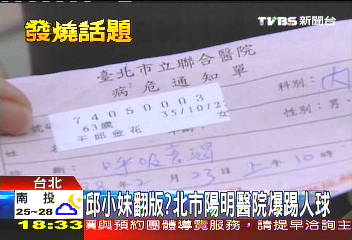 發燒話題
TVBS 新聞台
臺北市立聯合醫院
病危通知單
科別:內
性別:男
74050003
63歲
35/10/2
王邱金花
呼吸衰竭
23
上午10時
台北
邱小妹翻版?北市陽明醫院爆踢人球
南投
25~28
18:33
費與預約團體導覽服務,請提早洽詢主